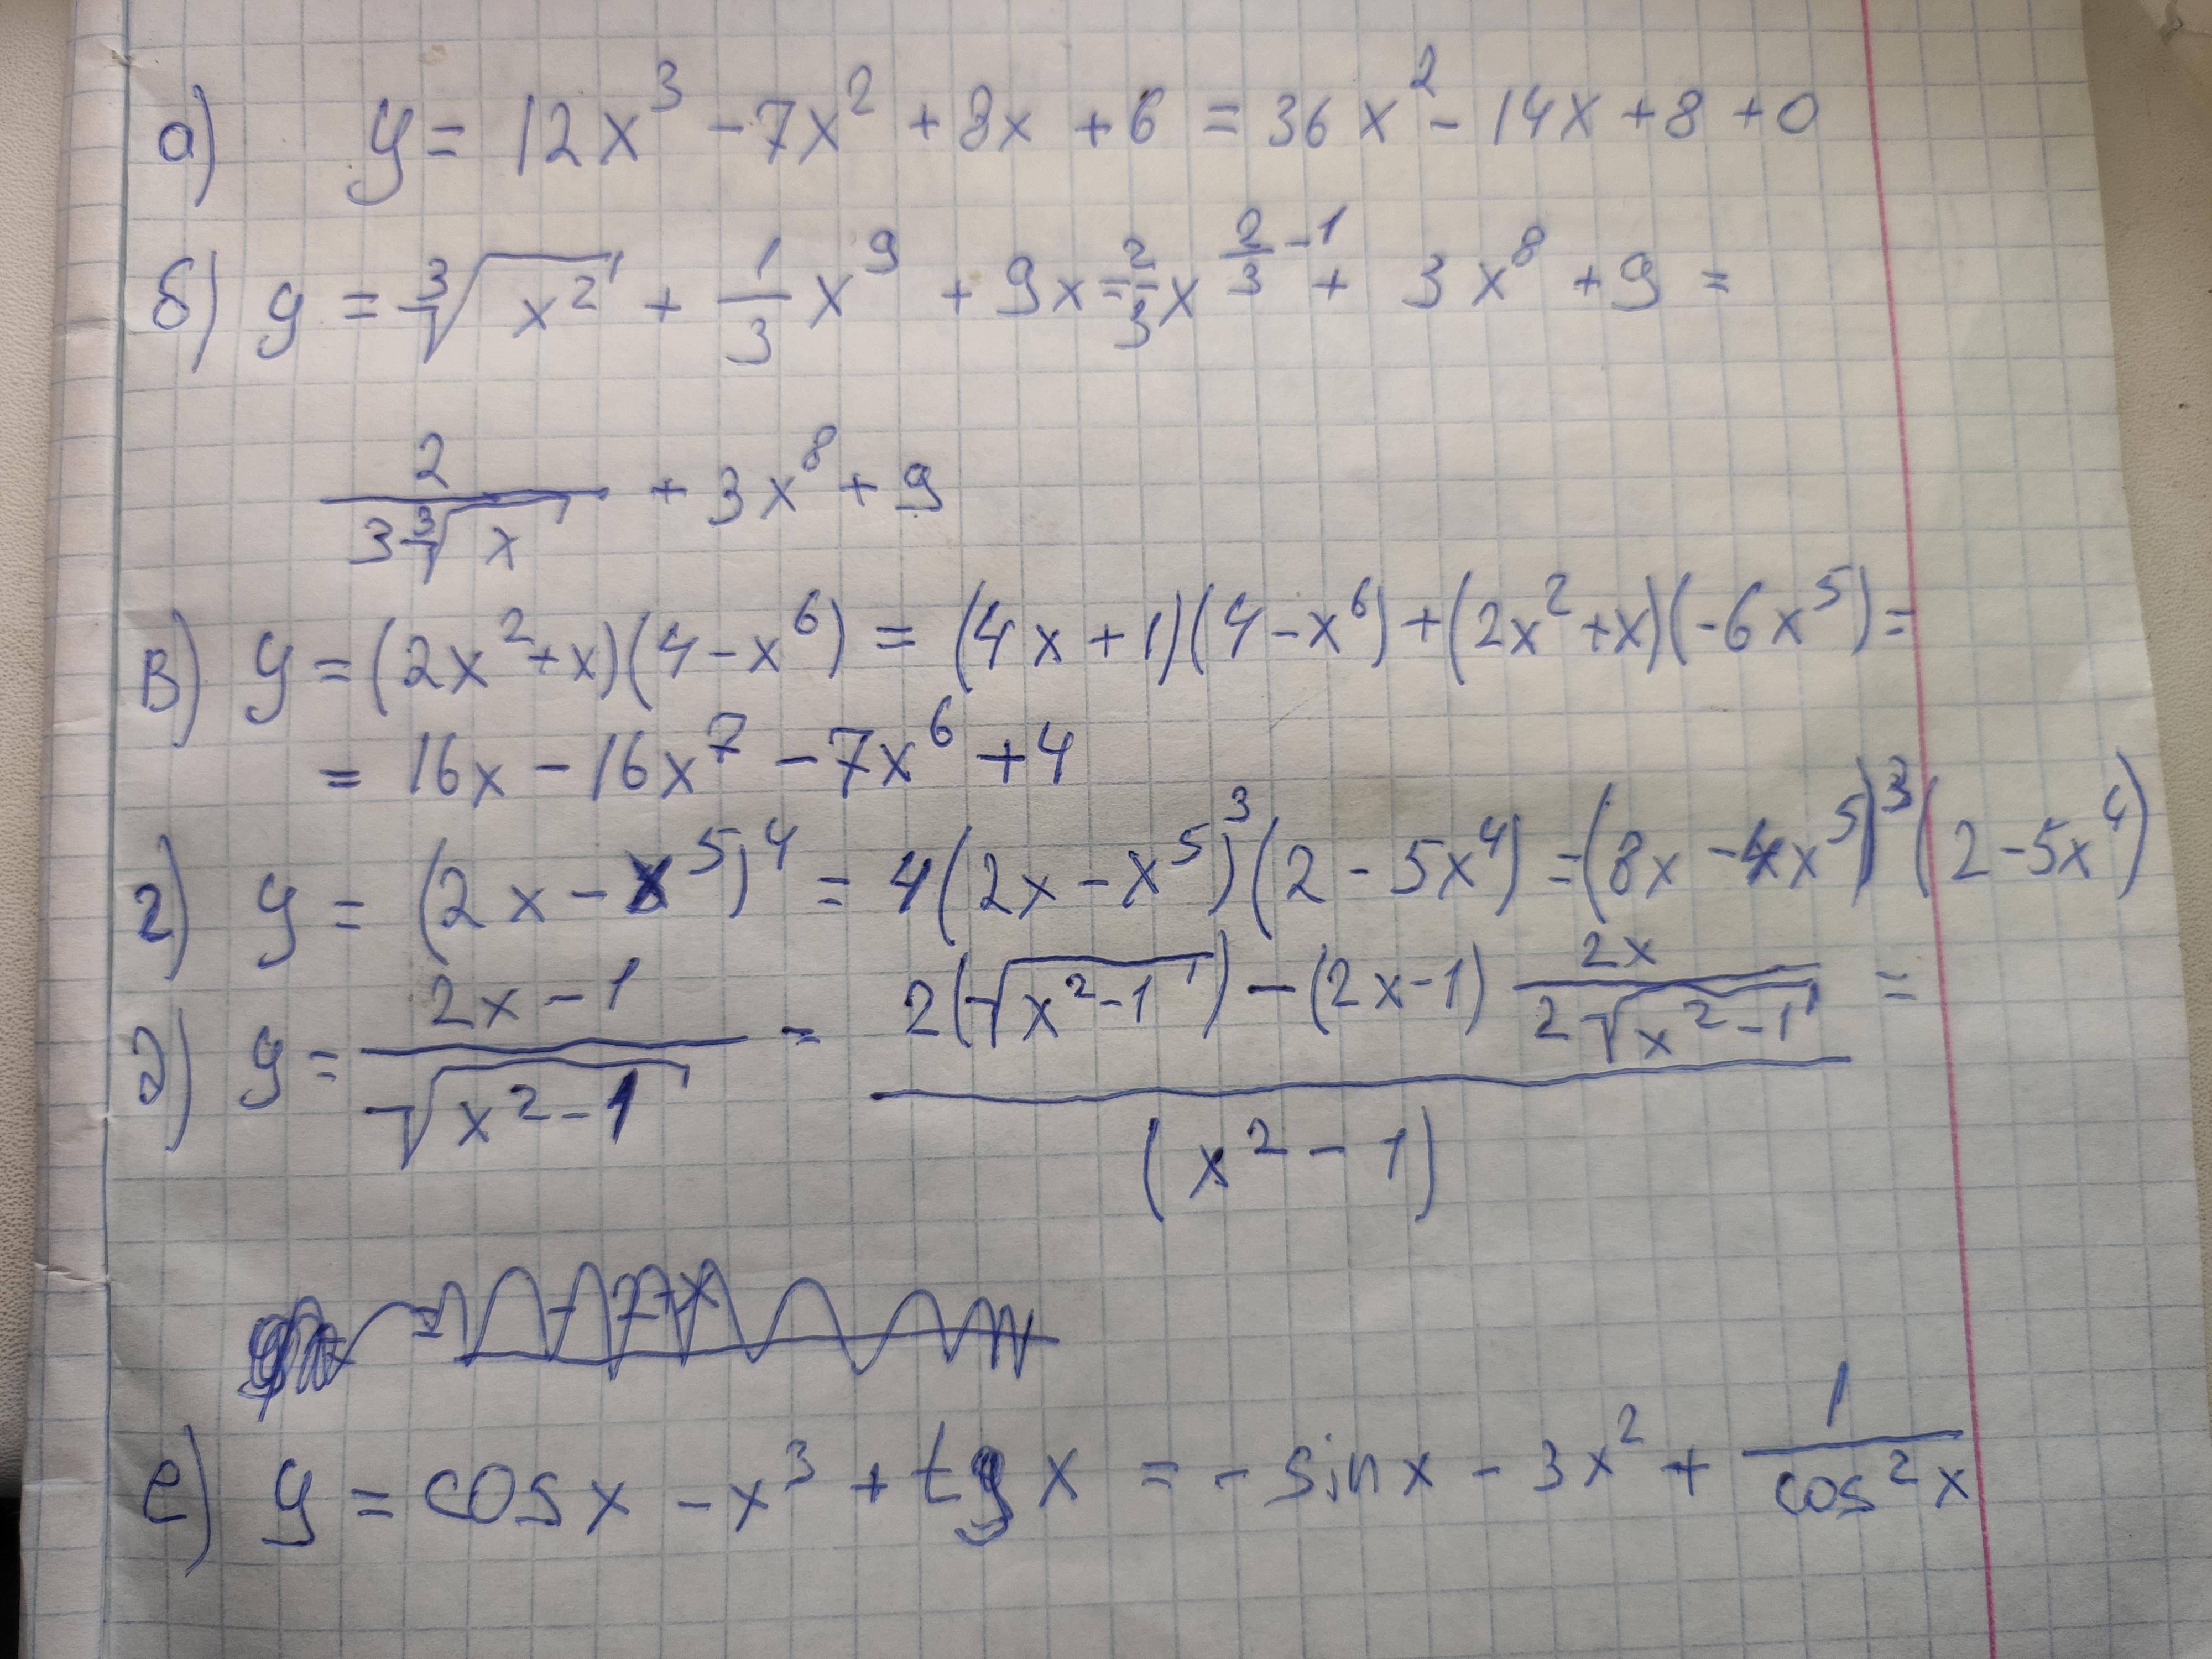 а) y = 12x³ - 7x² + 8x + 6 = 36x² - 14x + 8 + 0
б) y = ∛(x²) + 1/3 x⁹ + 9x = 2/3 x^(2/3 - 1) + 3x⁸ + 9 =
2/(3∛x) + 3x⁸ + 9
в) y = (2x² + x)(4 - x⁶) = (4x + 1)(4 - x⁶) + (2x² + x)(-6x⁵) =
= 16x - 16x⁷ - 7x⁶ + 4
г) y = (2x - x⁵)⁴ = 4(2x - x⁵)³(2 - 5x⁴) = (8x - 4x⁵)³(2 - 5x⁴)
д) y = (2x - 1)/√(x² - 1) = (2(√(x² - 1)) - (2x - 1) 2x/(2√(x² - 1)))/(x² - 1) =
е) y = cosx - x³ + tgx = - sinx - 3x² + 1/cos²x